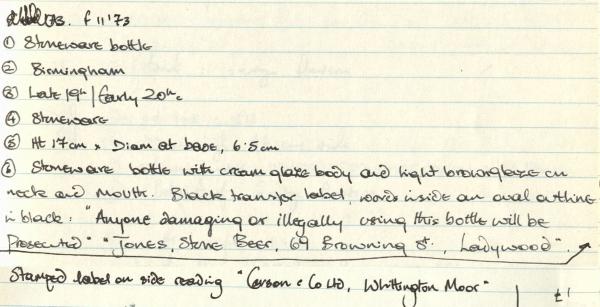 F 11'73
① Stoneware bottle
② Birmingham
③ Late 19th / Early 20th c
④ Stoneware
⑤ Ht 17cm x Diam at base, 6.5cm
⑥ Stoneware bottle with cream glaze body and light brown glaze on
neck and mouth. Black transfer label, words inside an oval outline
in black: "Anyone damaging or illegally using this bottle will be
Prosecuted" "Jones, Stone Beer, 69 Browning St., Ladywood".
Stamped label on side reading "Carson & Co Ltd, Whittington Moor" £1